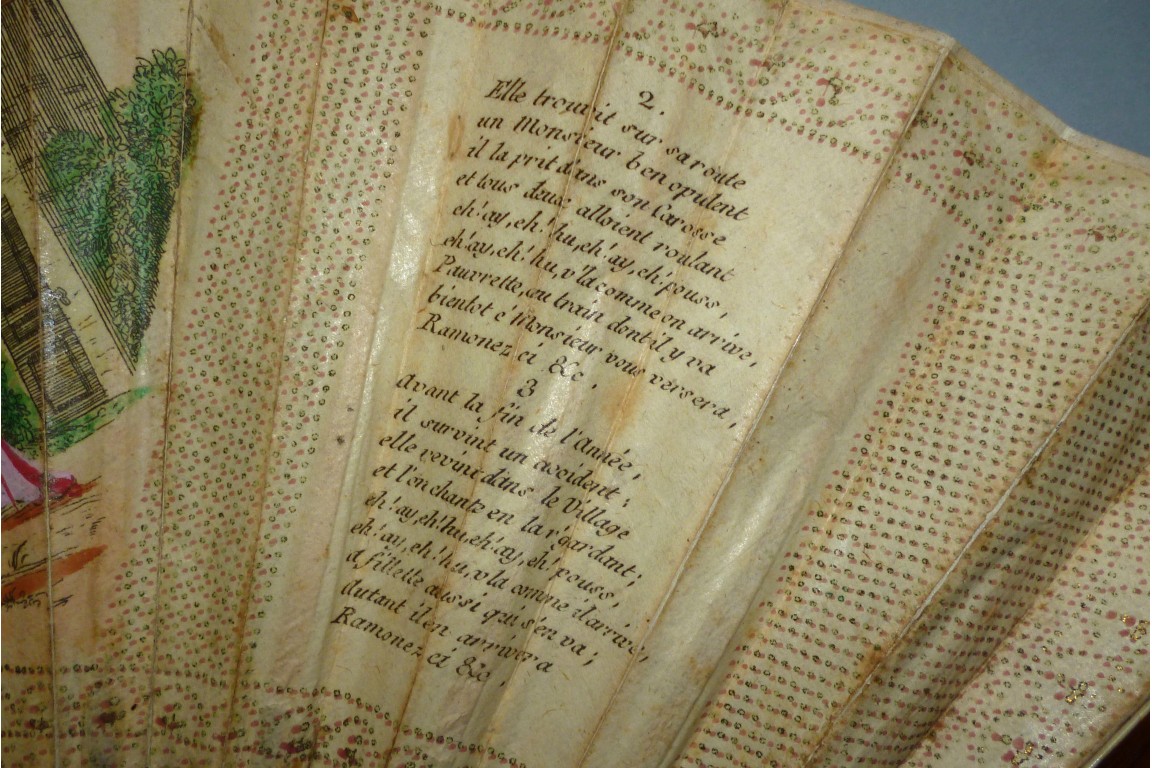 2.
Elle trouvit sur sa route
un Monsieur ben opulent
il la prit dans son Carosse
et tous deux alloient roulant
eh! ay, eh! hu, eh! ay, eh! pouss,
eh! ay, eh! hu, v'la comme on arrive,
Pauvrette, au train dont il y va
bientot c' Monsieur vous versera,
Ramonez ci &c.
3
avant la fin de l'Année,
il survint un accident;
elle revint dans le Village
et l'on chante en la r'gardant;
eh! ay, eh! hu, eh! ay, eh! pouss,
eh! ay, eh! hu, v'la comme il arrive,
a fillette aussi qui s'en va;
autant il en arrivera
Ramonez ci &c.